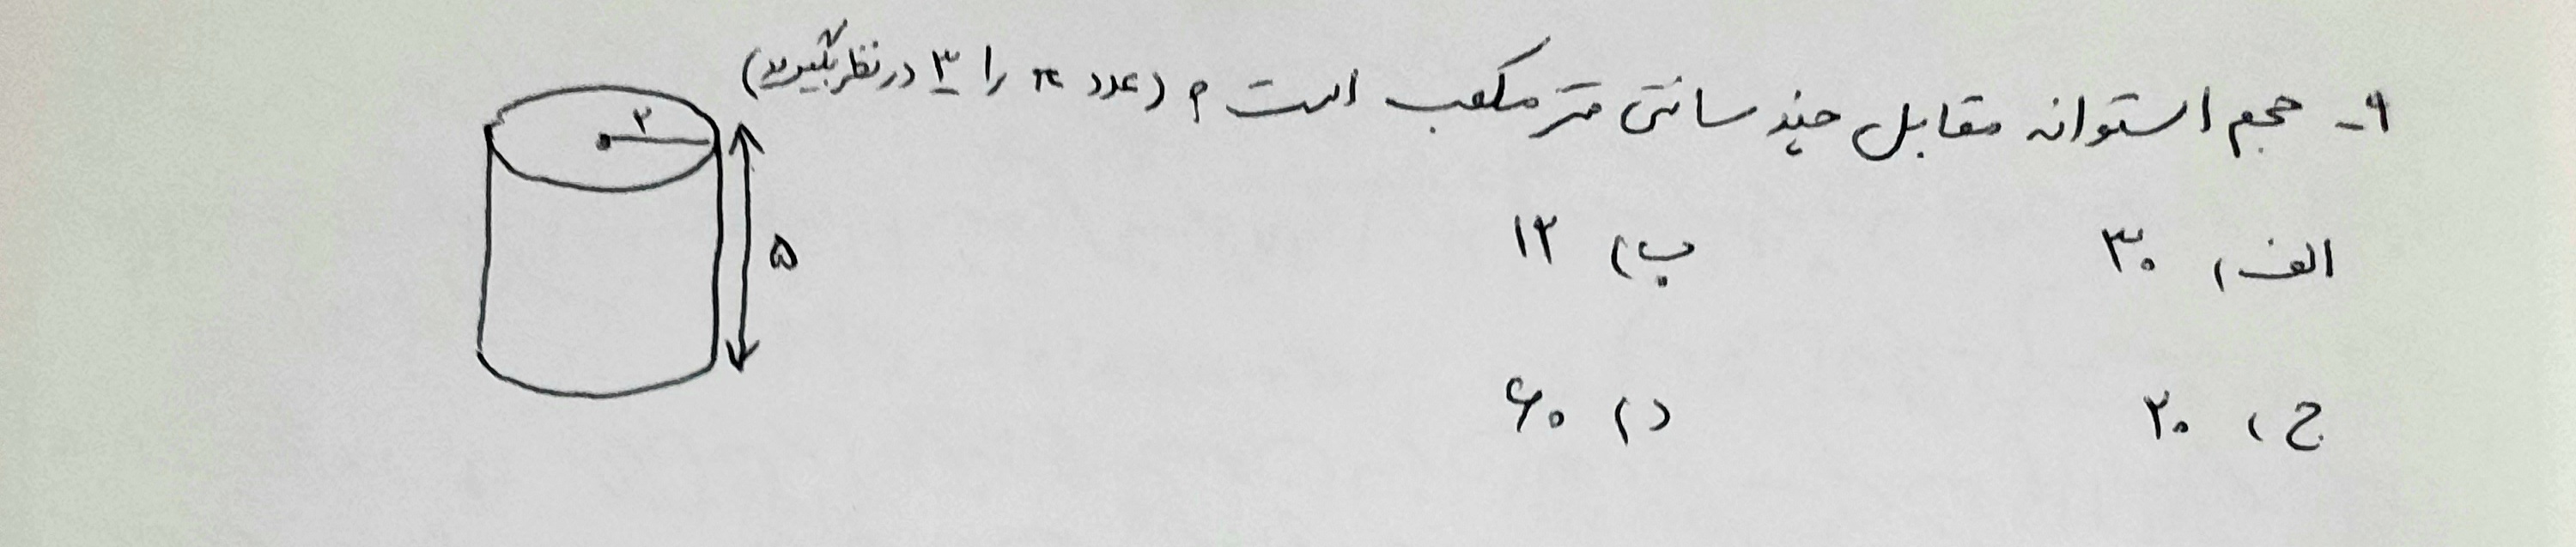 ۹- حجم استوانه مقابل چند سانتی متر مکعب است ؟ (عدد π را ۳ در نظر بگیرید)
الف) ۳۰ ب) ۱۲
ج) ۲۰ د) ۶۰
۲
۵